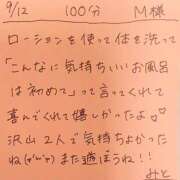 9/12 100分 M様
ローションを使って体を洗って
「こんなに気持ちいいお風呂
は初めて」って言ってくれて
喜んでくれて嬉しかったよ♡
沢山2人で気持ちよかった
ね(*'∀'*)また遊ぼうね!!
みと